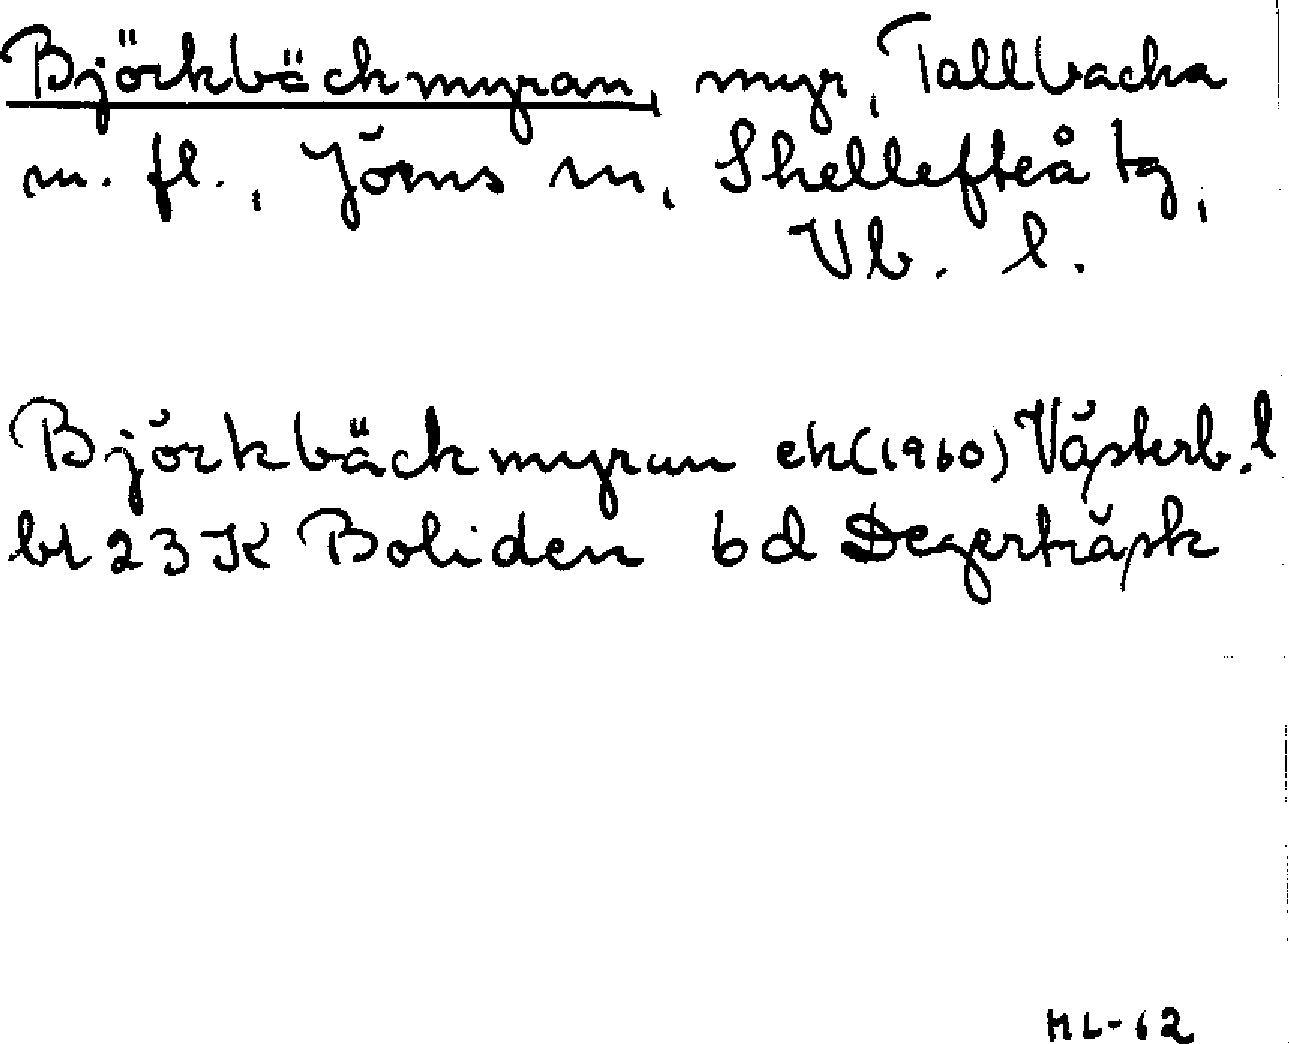 Björkbäckmyran, myr, Tallbacka
m. fl., Jörns sn, Skellefteå tg,
Vb. l.
Björkbäckmyran ek (1960) Västerb. l
bl 23 K Boliden bd Degerträsk
HL-62